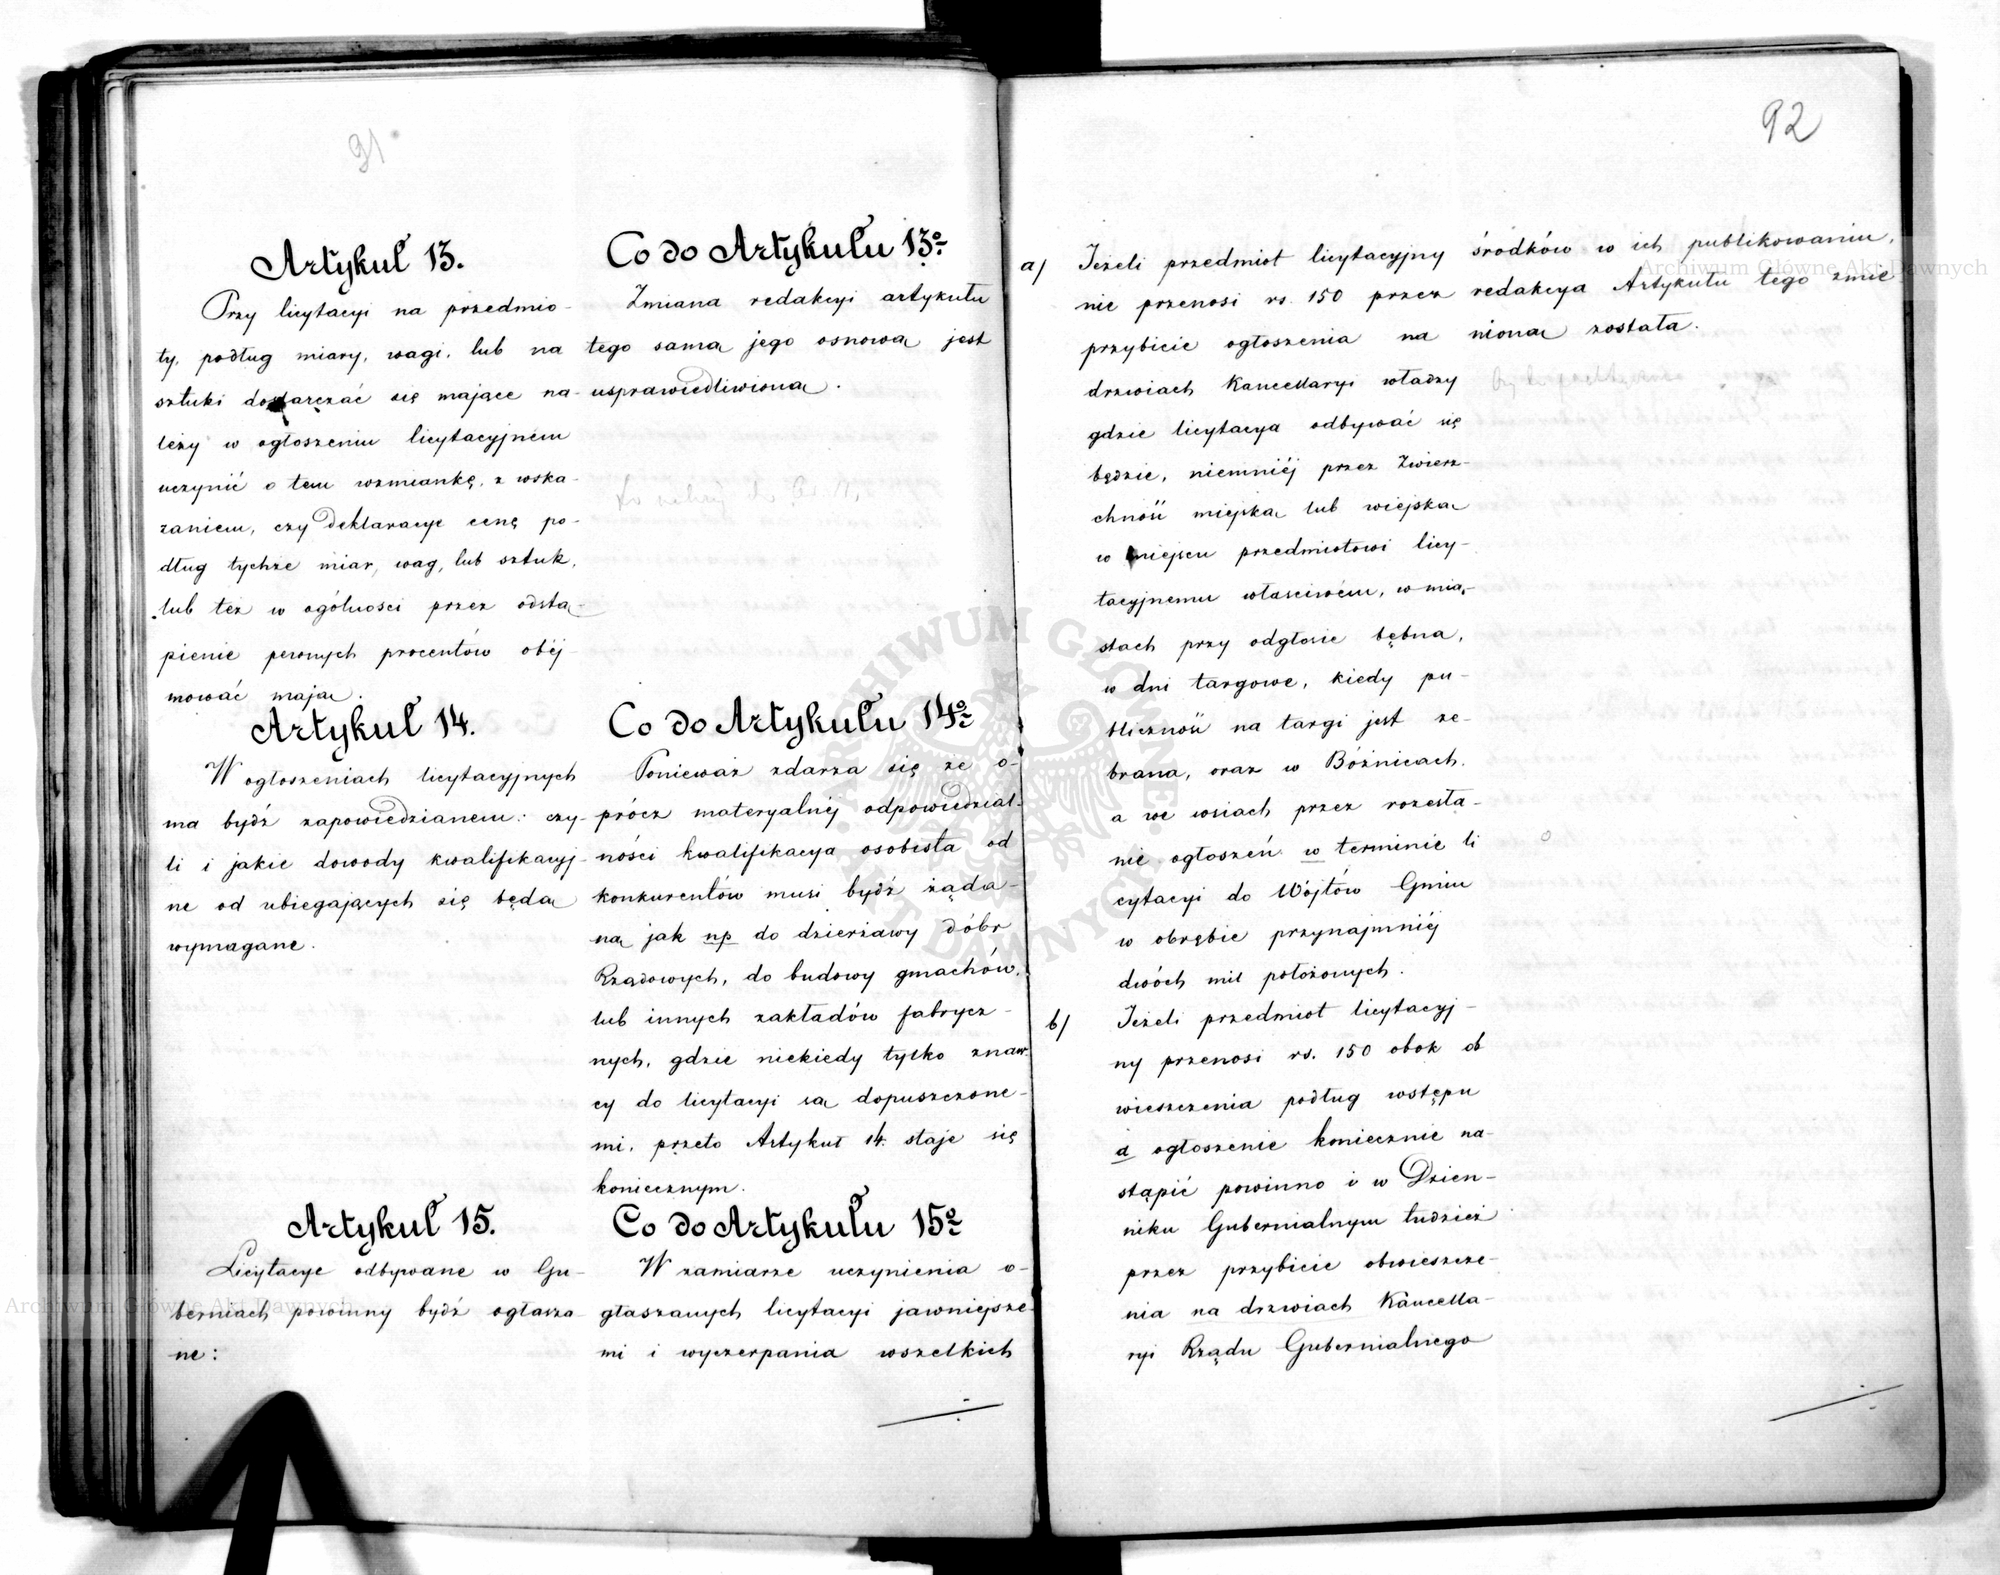 91
Artykuł 13.
Przy licytacyi na przedmio-
ty, podług miary, wagi, lub na
sztuki dostarczać się mające na-
leży w ogłoszeniu licytacyjnem
uczynić o tem wzmiankę, z wska-
zaniem, czy deklaracye cenę po-
dług tychże miar, wag, lub sztuk,
lub też w ogólności przez odstą-
pienie pewnych procentów obéj-
mować mają.
Artykuł 14.
W ogłoszeniach licytacyjnych
ma bydź zapowiedzianem: czy-
li i jakie dowody kwalifikacyj-
ne od ubiegających się będą
wymagane.
Artykuł 15.
Licytacye odbywane w Gu-
berniach powinny bydź ogłasza-
ne:
Co do Artykułu 13º
Zmiana redakcyi artykułu
tego samą jego osnową jest
usprawiedliwioną.
Co do Artykułu 14º
Ponieważ zdarza się że o-
prócz materyalnéj odpowiedzial-
ności kwalifikacya osobista od
konkurentów musi bydź żąda-
ną jak np do dzierżawy dóbr
Rządowych, do budowy gmachów,
lub innych zakładów fabrycz-
nych, gdzie niekiedy tylko znaw-
cy do licytacyi są dopuszczone-
mi, przeto Artykuł 14. staje się
koniecznym.
Co do Artykułu 15º
W zamiarze uczynienia o-
głaszanych licytacyi jawniejsze-
mi i wyczerpania wszelkich
92
a/ Jeżeli przedmiot licytacyjny
nie przenosi rs. 150 przez
przybicie ogłoszenia na
drzwiach Kancellaryi władzy
gdzie licytacya odbywać się
będzie, niemniéj przez Zwierz-
chność miejską lub wiejską
w miejscu przedmiotowi licy-
tacyjnemu właściwém, w mia-
stach przy odgłosie bębna,
w dni targowe, kiedy pu-
bliczność na targi jest ze-
brana, oraz w Bóżnicach.
a we wsiach przez rozesła-
nie ogłoszeń w terminie li
cytacyi do Wójtów Gmin
w obrębie przynajmniéj
dwóch mil położonych.
b/ Jeżeli przedmiot licytacyj-
ny przenosi rs. 150 obok ob
wieszczenia podług wstępu
a ogłoszenie koniecznie na-
stąpić powinno i w Dzien-
niku Gubernialnym tudzież
przez przybicie obwieszcze-
nia na drzwiach Kancella-
ryi Rządu Gubernialnego
środków w ich publikowaniu,
redakcya Artykułu tego zmie-
nioną została.
Archiwum Główne Akt Dawnych
Archiwum Główne Akt Dawnych
ARCHIWUM GŁÓWNE AKT DAWNYCH